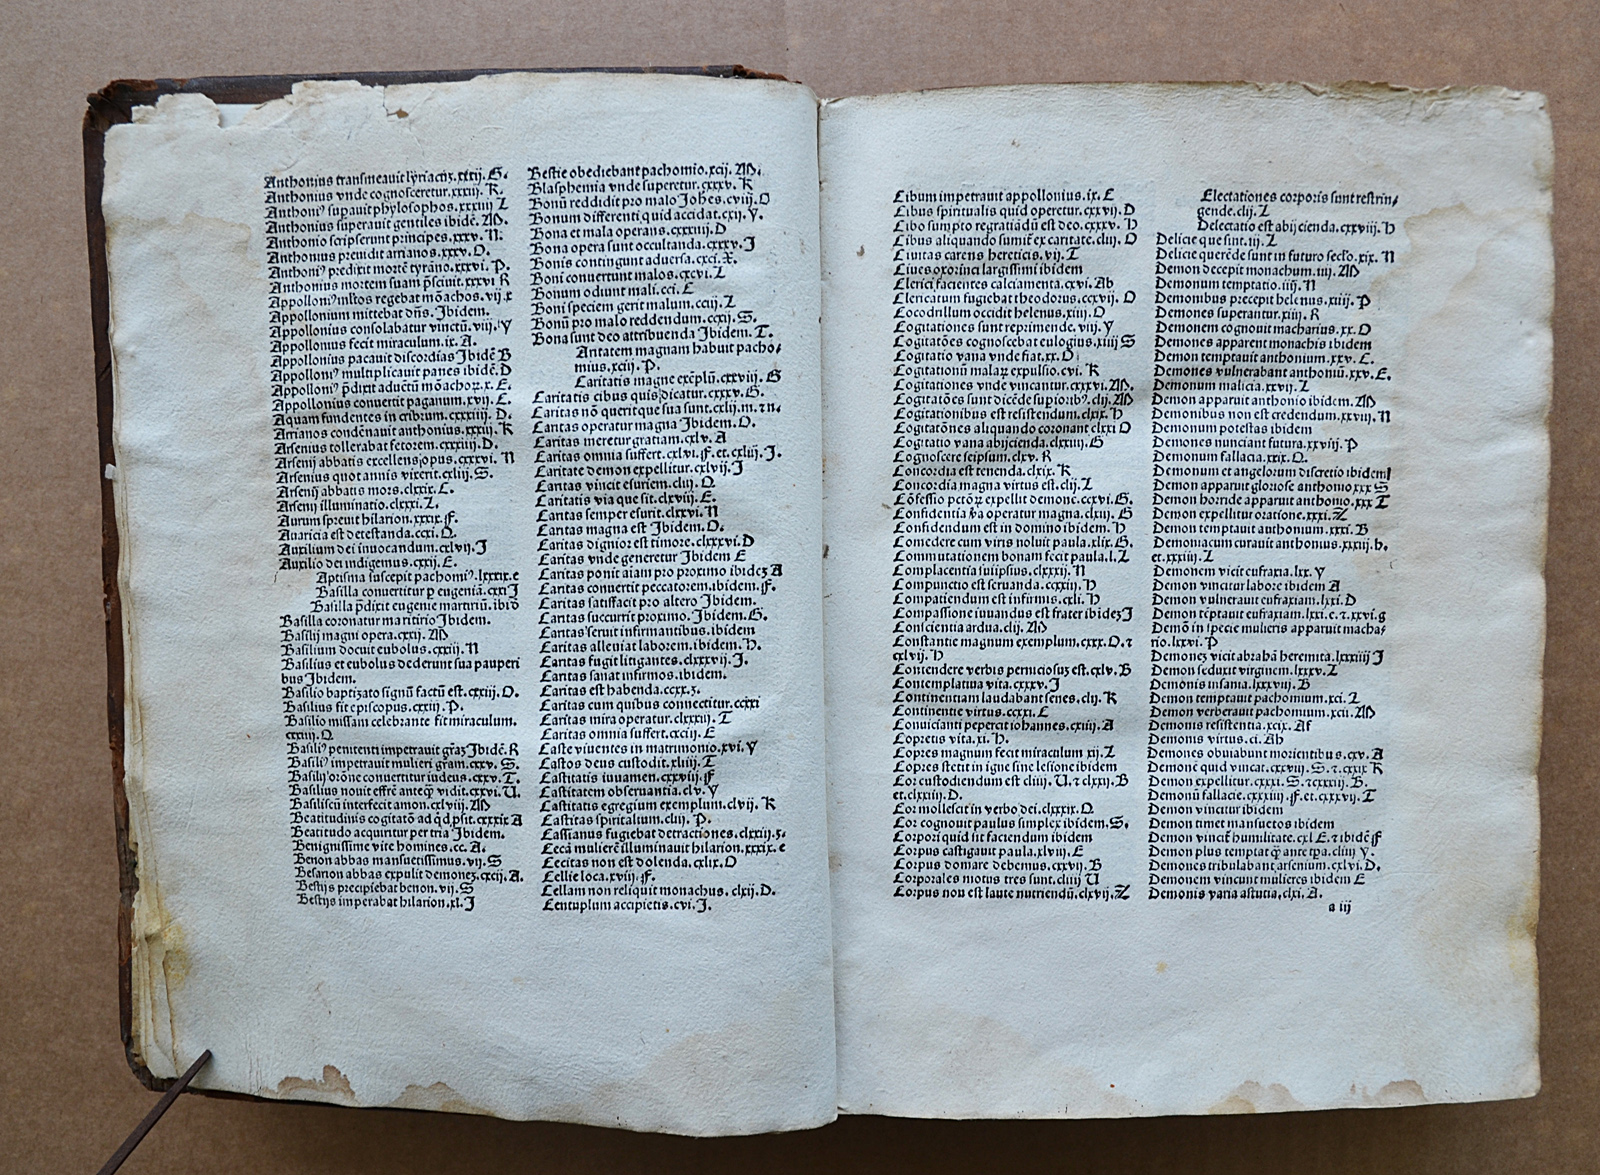 Anthonius transmeauit lyriacūz.xxxij. G.
Anthonius vnde cognosceretur.xxxiij. K.
Anthoniꝰ supauit phylosophos.xxxiiij Z
Anthonius superauit gentiles ibidē. M.
Anthonio scripserunt principes.xxxv. N.
Anthonius preuidit arrianos.xxxv. O.
Anthoniꝰ predixit mortē tyrāno.xxxvi. P.
Anthonius mortem suam p̄sciuit.xxxvi R
Appolloniꝰ mltos regebat mōachos.vij.x
Appollonium mittebat dn̄s. Ibidem.
Appollonius consolabatur vinctū.viij. Y
Appollonius fecit miraculum.ix. A.
Appollonius pacauit discordias Ibidē B
Appolloniꝰ multiplicauit panes ibidē. D
Appolloniꝰ p̄dixit aduētū mōachoꝝ.x. E.
Appollonius conuertit paganum.xvij. E.
Aquam fundentes in cribrum.cxxxiiij. D.
Arrianos condēnauit anthonius.xxxiij. K
Arsenius tollerabat fetorem.cxxxiij. D.
Arsenij abbatis excellens opus.cxxxvi. N
Arsenius quot annis vixerit.cxliij. S.
Arsenij abbatis mors.clxxix. C.
Arsenij illuminatio.clxxxi. Z.
Aurum spreuit hilarion.xxxix. F.
Auaricia est detestanda.ccxi. Q.
Auxilium dei inuocandum.cxlvij. I
Auxilio dei indigemus.cxij. E.
Aptisma suscepit pachomiꝰ.lxxxix.e
Basilla conuertitur p eugenia.cxxi I
Basilla p̄dixit eugenie martiriū.ibid̄
Basilla coronatur maritirio Ibidem.
Basilij magni opera.cxxij. M
Basilium docuit eubolus.cxxiij. N
Basilius et eubolus dederunt sua pauperi
bus Ibidem.
Basilio baptizato signū factū est.cxxiij. O.
Basilius fit episcopus.cxxiij. P.
Basilio missam celebrante fit miraculum.
cxxiij. Q.
Basiliꝰ penitenti impetrauit gr̄az Ibidē. R
Basiliꝰ impetrauit mulieri gr̄am.cxxv. S.
Basilijꝰ orōne conuertitur iudeus.cxxv. T.
Basilius nouit effrē anteq̄ȝ vidit.cxxvi. U.
Basiliscū interfecit amon.cxlviij. M
Beatitudinis cogitatō ad qd̄ p̄sit.cxxxix A
Beatitudo acquiritur per tria Ibidem.
Benignissime vite homines.cc. A.
Benon abbas mansuetissimus.vij. S
Besarion abbas expulit demonez.cxcij. A.
Bestijs precipiebat benon.vij. S
Bestijs imperabat hilarion.xl. I
Bestie obediebant pachomio.xcij. M.
Blasphemia vnde superetur.cxxxv. K
Bonū reddidit pro malo Johēs.cviij. O
Bonum differenti quid accidat.cxij. Y.
Bona et mala operans.cxxxiij. D
Bona opera sunt occultanda.cxxxv. I
Bonis contingunt aduersa.cxci. X.
Boni conuertunt malos.cxcvi. Z
Bonum odiunt mali.cci. E
Boni speciem gerit malum.ccij. Z
Bonū pro malo reddendum.ccxij. S.
Bona sunt deo attribuenda Ibidem. T.
Antatem magnam habuit pacho-
mius.xciij. P.
Caritatis magne exēplū.cxxviij. G
Caritatis cibus quis dicatur.cxxxv. G.
Caritas nō querit que sua sunt.cxlij.m.⁊n.
Caritas operatur magna Ibidem. O.
Caritas meretur gratiam.cxlv. A
Caritas omnia suffert.cxlvi. F. et.cxliij. I.
Caritate demon expellitur.cxlvij. I
Caritas vincit esuriem.cliij. Q.
Caritatis via que sit.clxviij. E.
Caritas semper esurit.clxxvi. N
Caritas magna est Ibidem. O.
Caritas dignior est timore.clxxxvi. D
Caritas vnde generetur Ibidem E
Caritas ponit aīam pro proximo ibidez A
Caritas conuertit peccatorem.ibidem. F.
Caritas satisfacit pro altero Ibidem.
Caritas succurrit proximo. Ibidem. G.
Caritas seruit infirmantibus.ibidem
Caritas alleuiat laborem.ibidem. H.
Caritas fugit litigantes.clxxxvij. I.
Caritas sanat infirmos.ibidem.
Caritas est habenda.ccxx.z.
Caritas cum quibus connectitur.ccxxi
Caritas mira operatur.clxxxij. T
Caritas omnia suffert.cxciij. E
Caste viuentes in matrimonio.xvi. Y
Castos deus custodit.xliij. T
Castitatis iuuamen.cxxviij. F
Castitatem obseruantia.clv. Y
Castitatis egregium exemplum.clvij. K
Castitas spiritalium.clij. P.
Cassianus fugiebat detractiones.clxxij.z.
Cecā mulierē illuminauit hilarion.xxxix.e
Cecitas non est dolenda.cxlix. O
Cellie loca.xviij. F.
Cellam non reliquit monachus.clxij. D.
Centuplum accipietis.cvi. I.
Cibum impetrauit appollonius.ix. C
Cibus spiritualis quid operetur.cxxvij. D
Cibo sumpto regratiādū est deo.cxxxv. H
Cibus aliquando sumit̄ ex caritate.cliij. O
Ciuitas carens hereticis.vij. T
Ciues oxorinci largissimi ibidem
Clerici facientes calciamenta.cxvi. Ab
Clericatum fugiebat theodorus.ccxvij. O
Cocodrillum occidit helenus.xiiij. O
Cogitationes sunt reprimende.viij. Y
Cogitatōes cognoscebat eulogius.xiiij S
Cogitatio vana vnde fiat.xx. O
Cogitationū malaꝝ expulsio.cvi. K
Cogitationes vnde vincantur.cxxxvi. M.
Cogitatōes sunt dicēde supioribꝰ.clij. M
Cogitationibus est resistendum.clxix. H
Cogitatōnes aliquando coronant clxxi O
Cogitatio vana abijcienda.clxxiij. G
Cognoscere seipsum.clxv. R
Concordia est tenenda.clxix. K
Concordia magna virtus est.clij. Z
Cōfessio pctōꝝ expellit demonē.ccxvi. G.
Confidentia Xp̄a operatur magna.clxij. G
Confidendum est in domino ibidem. H
Comedere cum viris noluit paula.xlix. G.
Commutationem bonam fecit paula.l. Z
Complacentia suiipsius.clxxxij. N
Compunctio est seruanda.ccxxij. H
Compatiendum est infirmis.cxli. H
Compassione iuuandus est frater ibidez I
Conscientia ardua.clij. M
Constantie magnum exemplum.cxxx. O.⁊
cxlvij. H
Contendere verbis perniciosuȝ est.cxlv. B
Contemplatiua vita.cxxxv. I
Continentiam laudabant senes.clij. K
Continentie virtus.ccxxi. E
Conuicianti pepercit iohannes.cxiij. A
Copretis vita.xi. H.
Copres magnum fecit miraculum xij. Z
Copres stetit in igne sine lesione ibidem
Cor custodiendum est cliij. U.⁊ clxxij. B
et.clxxiij. D.
Cor mollescit in verbo dei.clxxxix. Q.
Cor cognouit paulus simplex ibidem. S.
Corpori quid sit faciendum ibidem
Corpus castigauit paula.xlvij. E
Corpus domare debemus.cxxvij. B
Corporales motus tres sunt.cliij U
Corpus nou est laute nutriendū.clxvij. Z
Electationes corporis sunt restrin-
gende.clij. Z
Delectatio est abijcienda.cxxviij. H
Delicie que sint.iij. Z
Delicie querēde sunt in futuro sec̄lo.xix. N
Demon decepit monachum.iij. M
Demonum temptatio.iiij. N
Demonibus precepit helenus.xiiij. P
Demones superantur.xiij. R
Demonem cognouit macharius.xx. O
Demones apparent monachis ibidem
Demon temptauit anthonium.xxv. C.
Demones vulnerabant anthoniū.xxv. E.
Demonum malicia.xxvij. Z
Demon apparuit anthonio ibidem. M
Demonibus non est credendum.xxvij. N
Demonum potestas ibidem
Demones nunciant futura.xxviij. P
Demonum fallacia.xxix. Q.
Demonum et angelorum discretio ibidem
Demon apparuit gloriose anthonio.xxx S
Demon horride apparuit anthonio.xxx T
Demon expellitur oratione.xxxi. Z
Demon temptauit anthonium.xxxi. B
Demoniacum curauit anthonius.xxxij. h.
et.xxxiij. Z
Demonem vicit eufraxia.lxx. Y
Demon vincitur labore ibidem A
Demon vulnerauit eufraxiam.lxxi. D
Demon tēptauit eufraxiam.lxxi.c.⁊.xxvi.g
Demō in specie mulieris apparuit macha-
rio.lxxvi. P
Demonez vicit abrahā heremita.lxxxiiij I
Demon seduxit virginem.lxxxv. Z
Demonis insania.lxxxviij. B
Demon temptauit pachomium.xci. Z
Demon verberauit pachomium.xcij. M
Demonis resistentia.xcix. Af
Demonis virtus.ci. Ah
Demones obuiabunt morientibus.cxv. A
Demonē quid vincat.cxxvij. S.⁊ cxxix K
Demon expellitur.cxxxi. S.⁊cxxxiij. B.
Demonū fallacie.cxxxiij. F. et.cxxxvij. T
Demon vincitur ibidem
Demon timet mansuetos ibidem
Demon vincit̄ humilitate.cxl E.⁊ ibidē F
Demon plus temptat q̄ȝ ante tp̄a.cliij Y.
Demones tribulabant arsenium.cxlvi. D.
Demonem vincunt mulieres ibidem E
Demonis varia astutia.clxi. A.
a iij